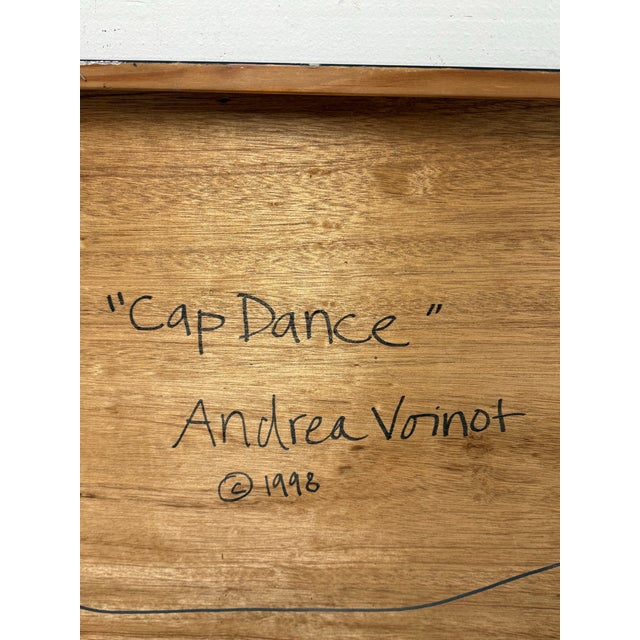 "Cap Dance"
Andrea Voinot
© 1998